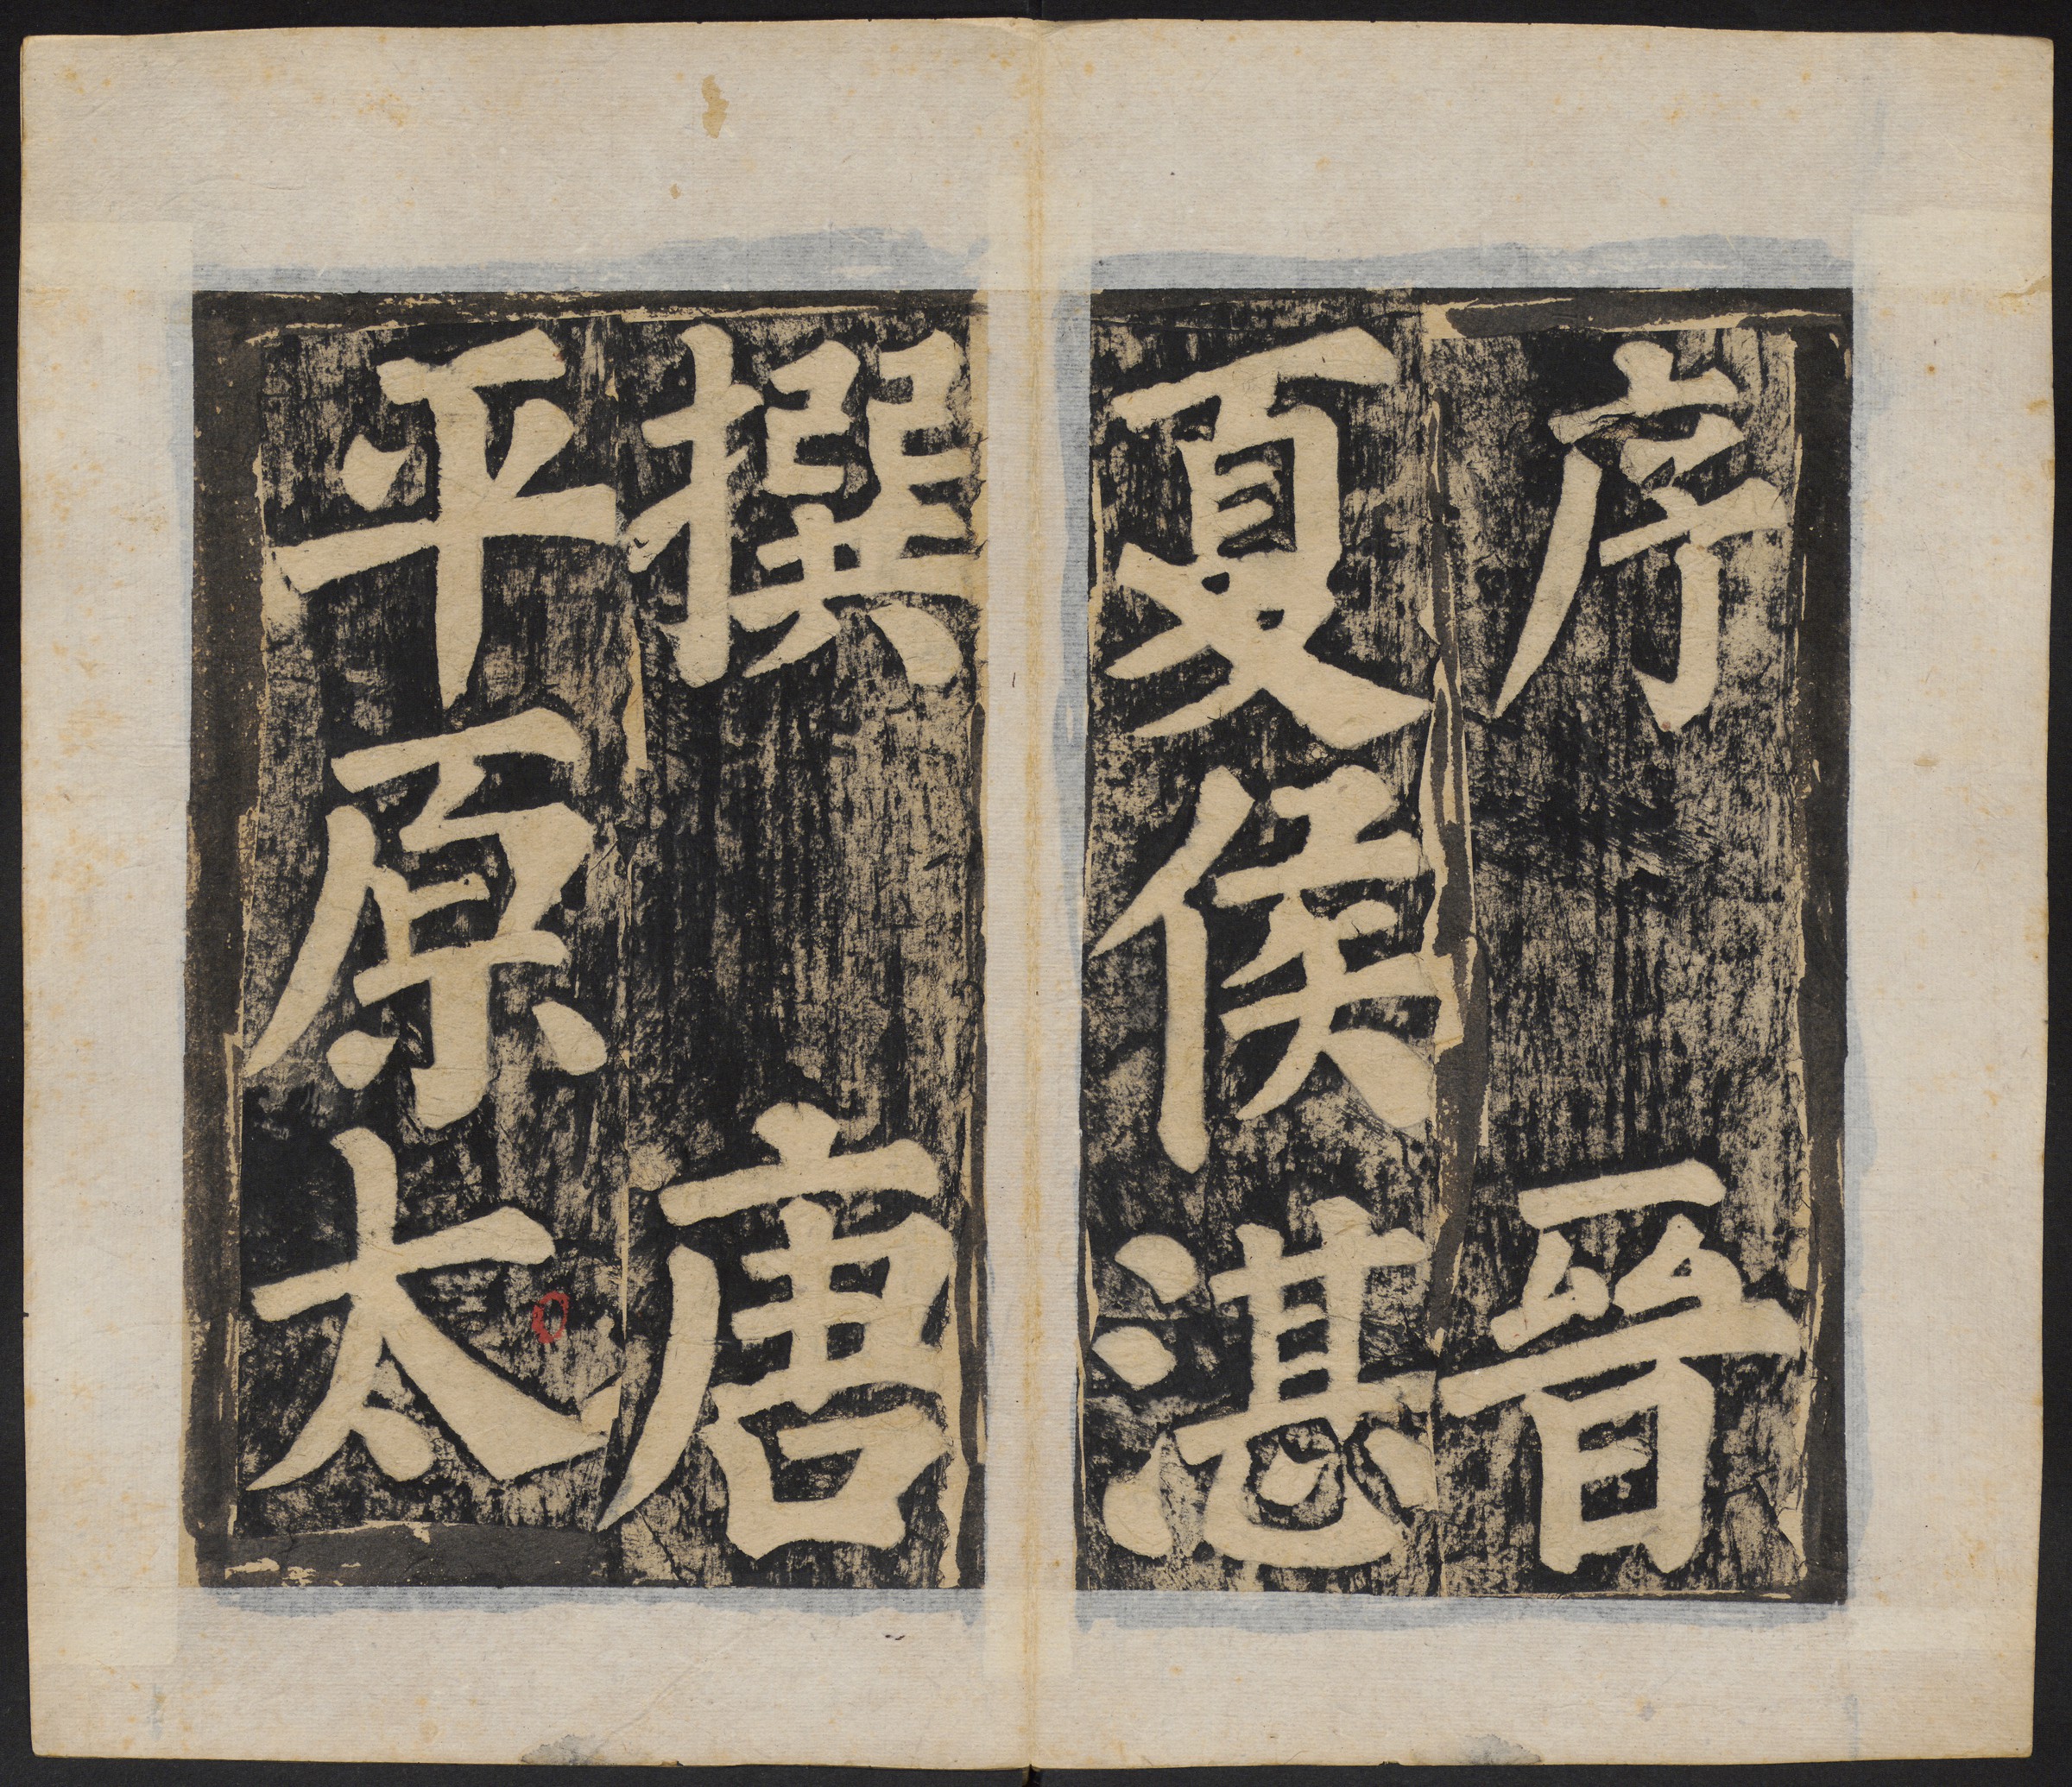 序 晉
夏侯湛
撰 唐
平原太